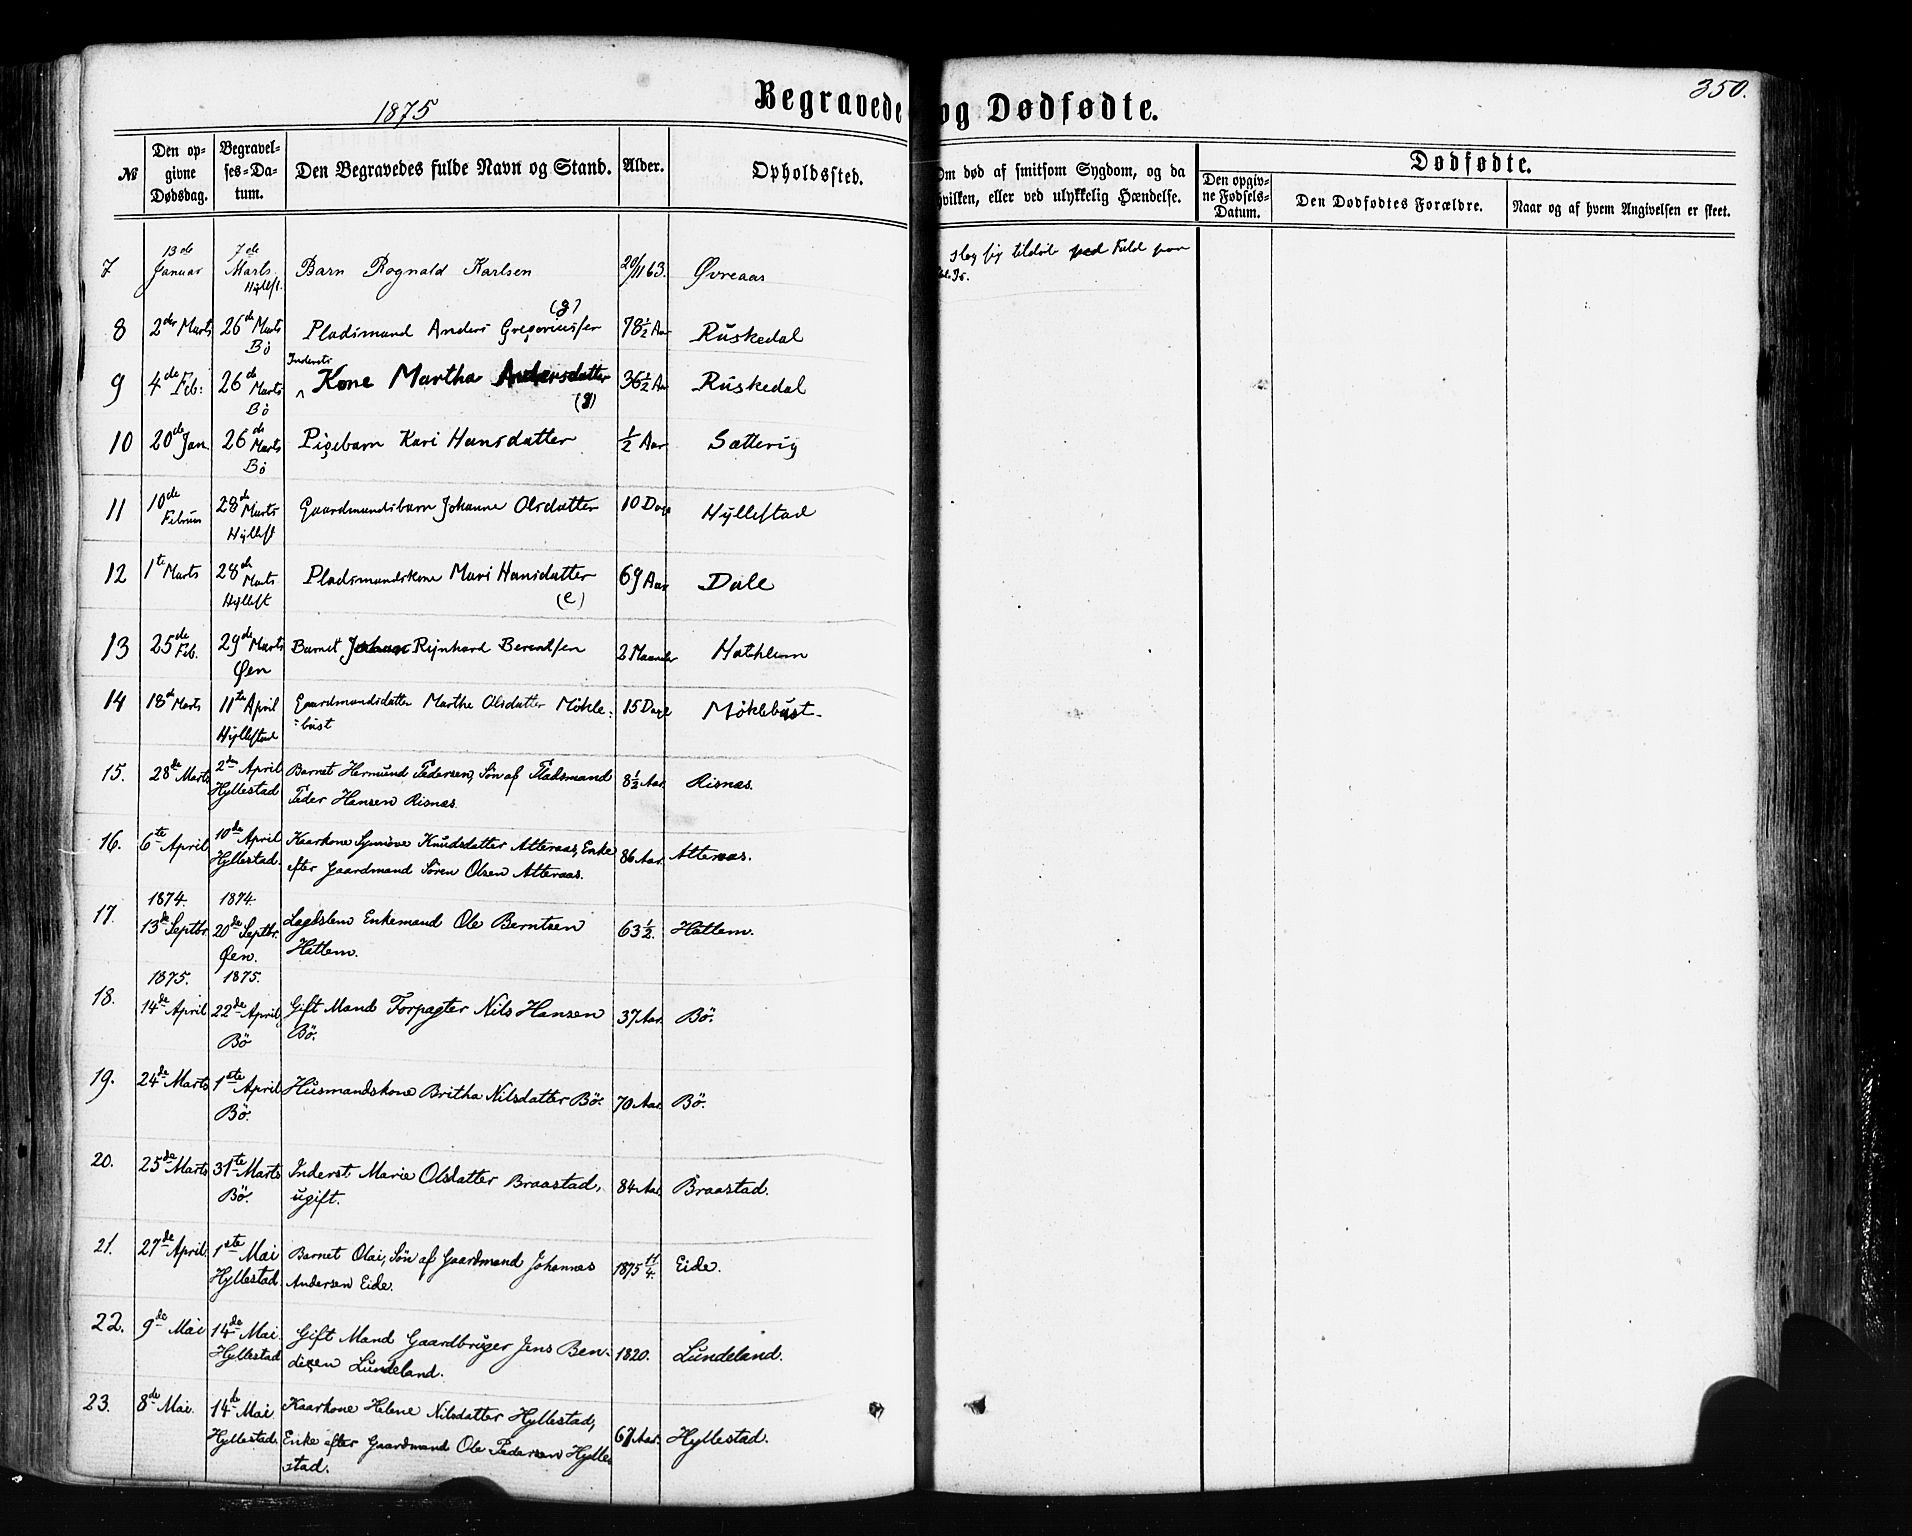 1875
Begravede og Dødfødte.
350.
№
Den op-
givne
Dødsdag.
Begravel-
ses-Da-
tum.
Den Begravedes fulde Navn og Stand.
Alder.
Opholdssted.
Om død af smitsom Sygdom, og da
hvilken, eller ved ulykkelig Hændelse.
Dødfødte.
Den opgiv-
ne Fødsels-
Datum.
Den Dødfødtes Forældre.
Naar og af hvem Angivelsen er skeet.
7
13de
Januar
7de
Marts
Hyllest.
Barn Rognald Karlsen
20/11 63.
Øvreaas
slog sig tildøde ved Fald paa
Is.
8
2den Marts
26de Marts
Bö
Pladsmand Anders Gregoriussen
(g)
78½ Aar
Ruskedal
9
4de Feb:
26de Marts
Bö
Inderste
Kone Martha Andersdatter
(g)
36½ Aar
Ruskedal
10
20de Jan.
26de Marts
Bö
Pigebarn Kari Hansdatter
½ Aar
Sætterig
11
10de
Februar
28de Marts
Hyllest
Gaardmandsbarn Johanne Olsdatter
10 Dage
Hyllestad
12
1te Marts
28de
Marts
Hyllest
Pladsmandskone Mari Hansdatter
(e)
69 Aar
Dale
13
25de Feb.
29de Marts
Øen
Barnet Rejnhard Berentsen
2 Maaneder
Hatlem
14
18de Marts
11te April
Hyllestad
Gaardmandsdatter Marthe Olsdatter Mökle-
bust
15 Dage
Möklebust.
15.
28de Marts
2den April
Hyllestad
Barnet Hermund Pedersen, Sön af Pladsmand
Peder Hansen Risnæs.
8½ Aar.
Risnæs.
16.
6te April
10de April
Hyllestad.
Kaarkone Synnöve Knudsdatter Atteraas, Enke
efter Gaardmand Sören Olsen Atteraas.
86 Aar.
Atteraas.
17.
1874.
13de Septbr.
1874.
20de Septbr.
Øen.
Lægdslem Enkemand Ole Berntsen
Hatlem.
63½.
Hatlem.
18.
1875.
14de April
1875.
22de April
Bö
Gift Mand Forpagter Nils Hansen
Bö.
37 Aar.
Bö.
19.
24de Marts
1ste April
Bö.
Husmandskone Britha Nilsdatter Bö.
70 Aar.
Bö.
20.
25de Marts
31te Marts
Bö.
Inderst Marie Olsdatter Braastad,
ugift.
84 Aar.
Braastad.
21.
27de April.
1ste Mai
Hyllestad.
Barnet Olai, Sön af Gaardmand Johannes
Andersen Eide.
1875 11/4.
Eide.
22.
9de Mai
14de Mai.
Hyllestad
Gift Mand Gaardbruger Jens Ben-
dixen Lundeland.
1820.
Lundeland.
23.
8de Mai.
14de Mai.
Hyllestad.
Kaarkone Helene Nilsdatter Hyllestad,
Enke efter Gaardmand Ole Pedersen Hylle-
stad.
67 Aar.
Hyllestad.